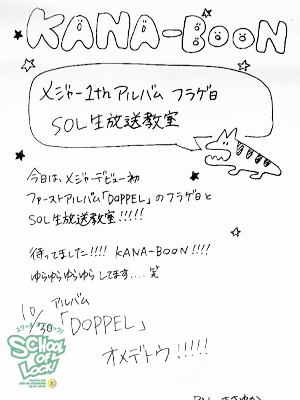 KANA-BOON
メジャー1thアルバム フラゲ日
SOL生放送教室
今日は、メジャーデビュー初
ファーストアルバム「DOPPEL」のフラゲ日と
SOL生放送教室!!!!!
待ってました!!!! KANA-BOON!!!!
ゆらゆらゆらゆらしてます....笑
10/30 アルバム
「DOPPEL」
オメデトウ!!!!!
スクールオブロック!
SCHOOL OF LOCK!